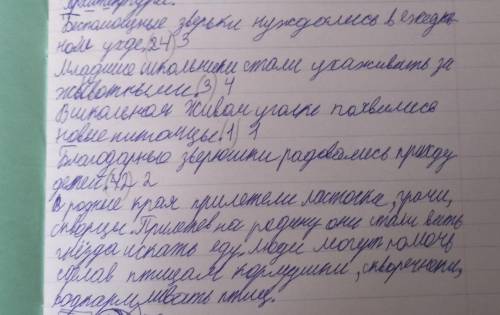 Беспомощные зверьки нуждались в ежедн
ном уходе. 2 4) 3
Младшие школьники стали ухаживать за
животными. (3) 4
В школьном живом уголке появились
новые питомцы. 1) 1
Благодарные зверюшки радовались приходу
детей. 4 2) 2
В родные края прилетели ласточки, грачи,
скворцы. Прилетев на родину они стали вить
гнёзда искать еду. Люди могут помочь
сделав птицам кормушки, скворечники,
подкармливать птиц.